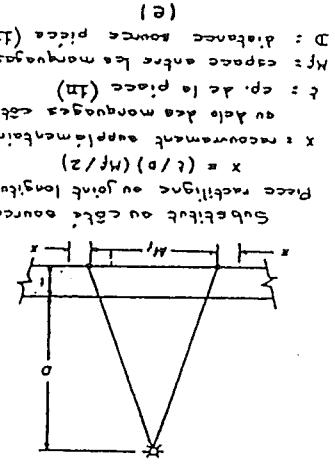 D
t
x Mf x
Substitut ou côté source
Piece rectiligne ou joint longitu
x = (t/D) (Mf/2)
x : recouvrement supplémentair
au delà des marquages côt
t : ep. de la piece (in)
Mf: espace entre les marquages
D : distance source pièce (in
(e)